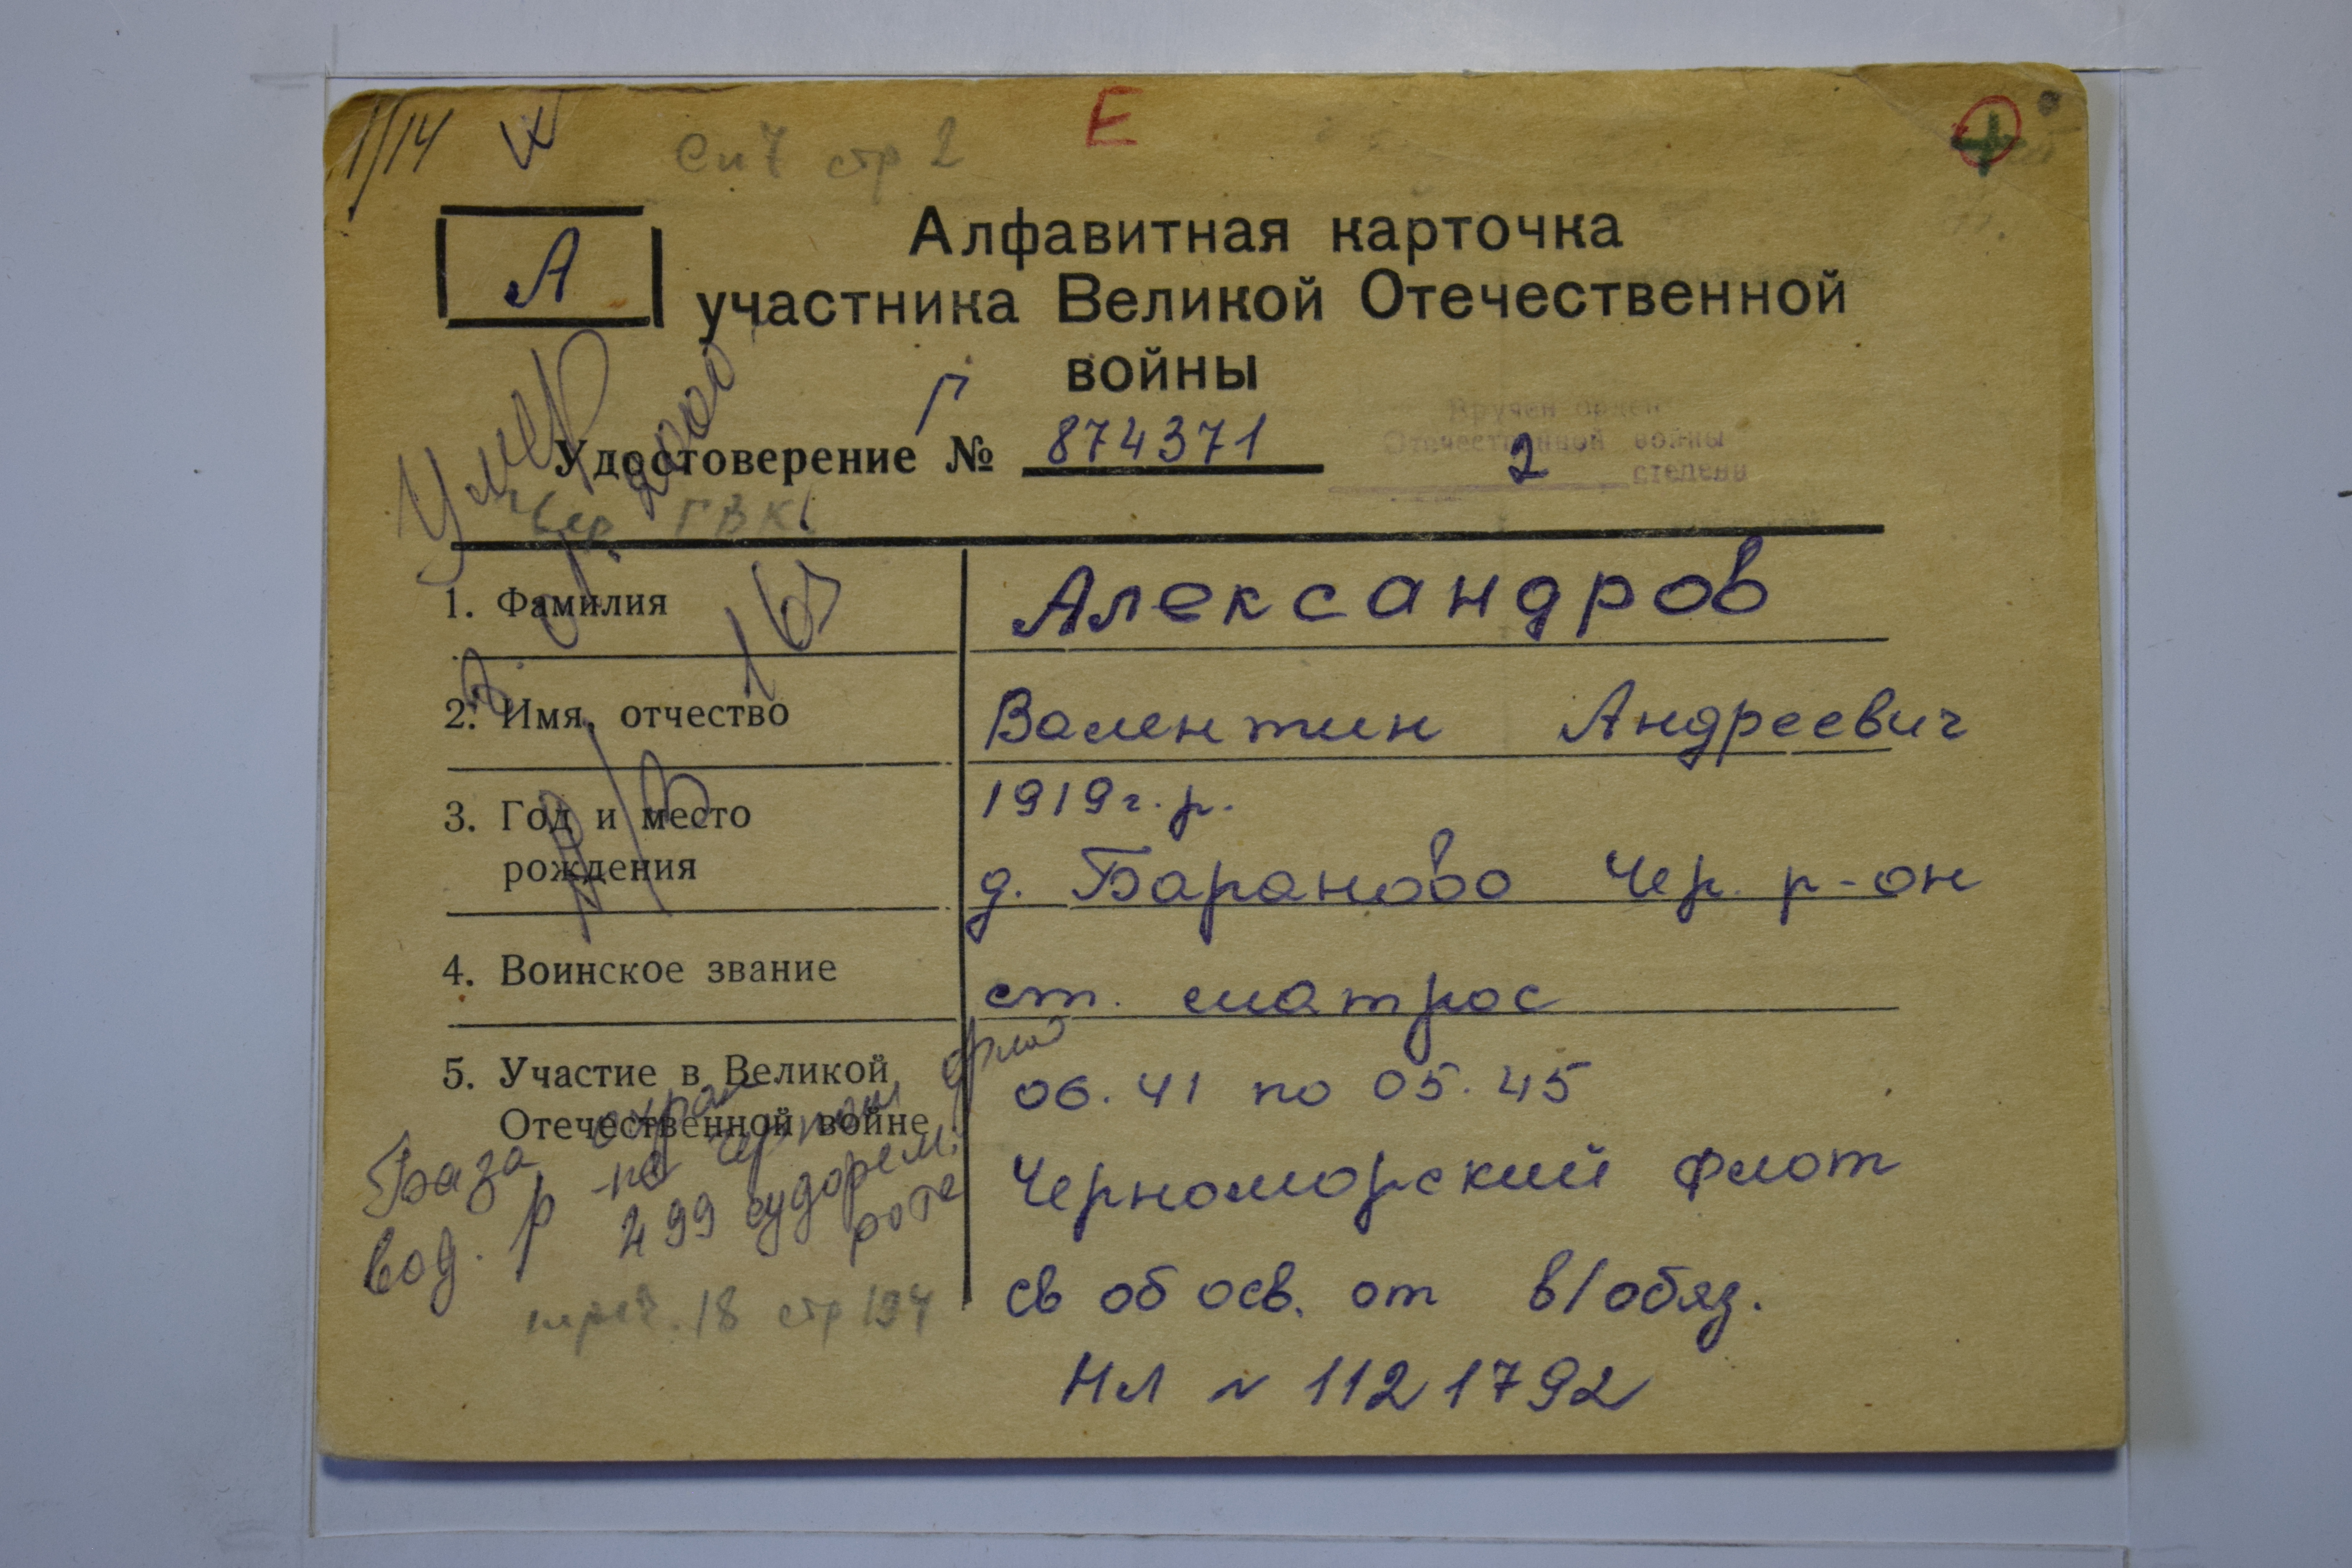 1/14
Сп 7 стр 2
Е
А
Алфавитная карточка
участника Великой Отечественной
войны
Г
Удостоверение № 874371
Вручен орден
Отечественной войны
2 степени
Умер 2000
Чер. ГВК
1. Фамилия Александров
2. Имя, отчество Валентин Андреевич
3. Год и место рождения 1919 г. р.
д. Бараново Чер. р-он
4. Воинское звание ст. матрос
5. Участие в Великой Отечественной войне 06.41 по 05.45
Черноморский флот
св об осв. от в/обяз.
НЛ № 1121792
База охран
вод. р-на
499 судорем.
рота
стр 194